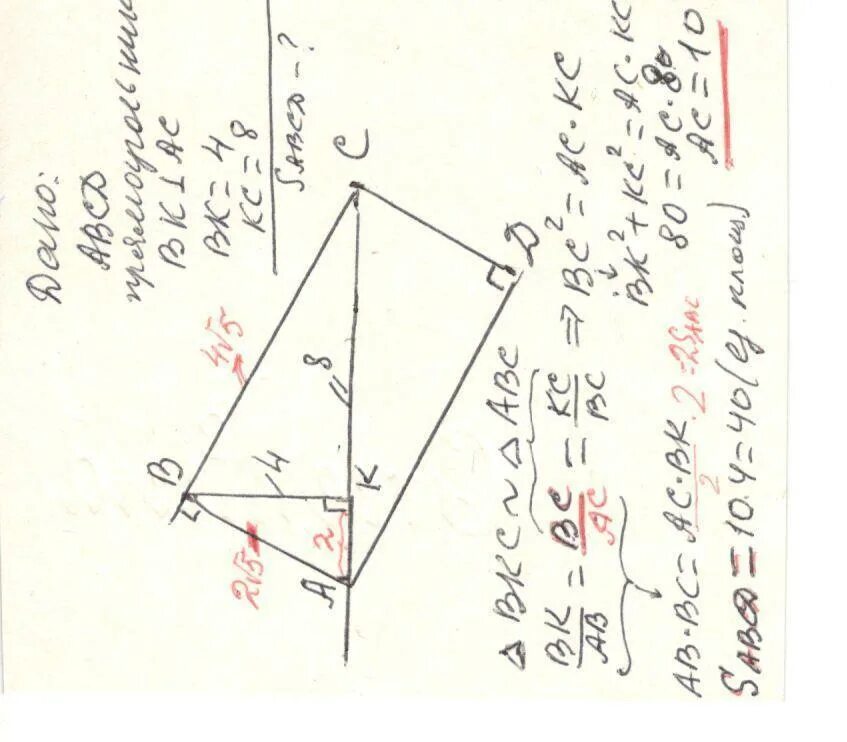 Дано:
ABCD
прямоугольник
BK ⊥ AC
BK = 4
KC = 8
S ABCD - ?
B
4√5
C
2√5
4
8
A
2
K
D
△ BKC ~ △ ABC
BK/AB = BC/AC = KC/BC ⇒ BC² = AC · KC
BK² + KC² = AC · KC
80 = AC · 8
AC = 10
AB · BC = AC · BK/2 · 2 = 2S ABC
S ABCD = 10 · 4 = 40 (ед. площ)